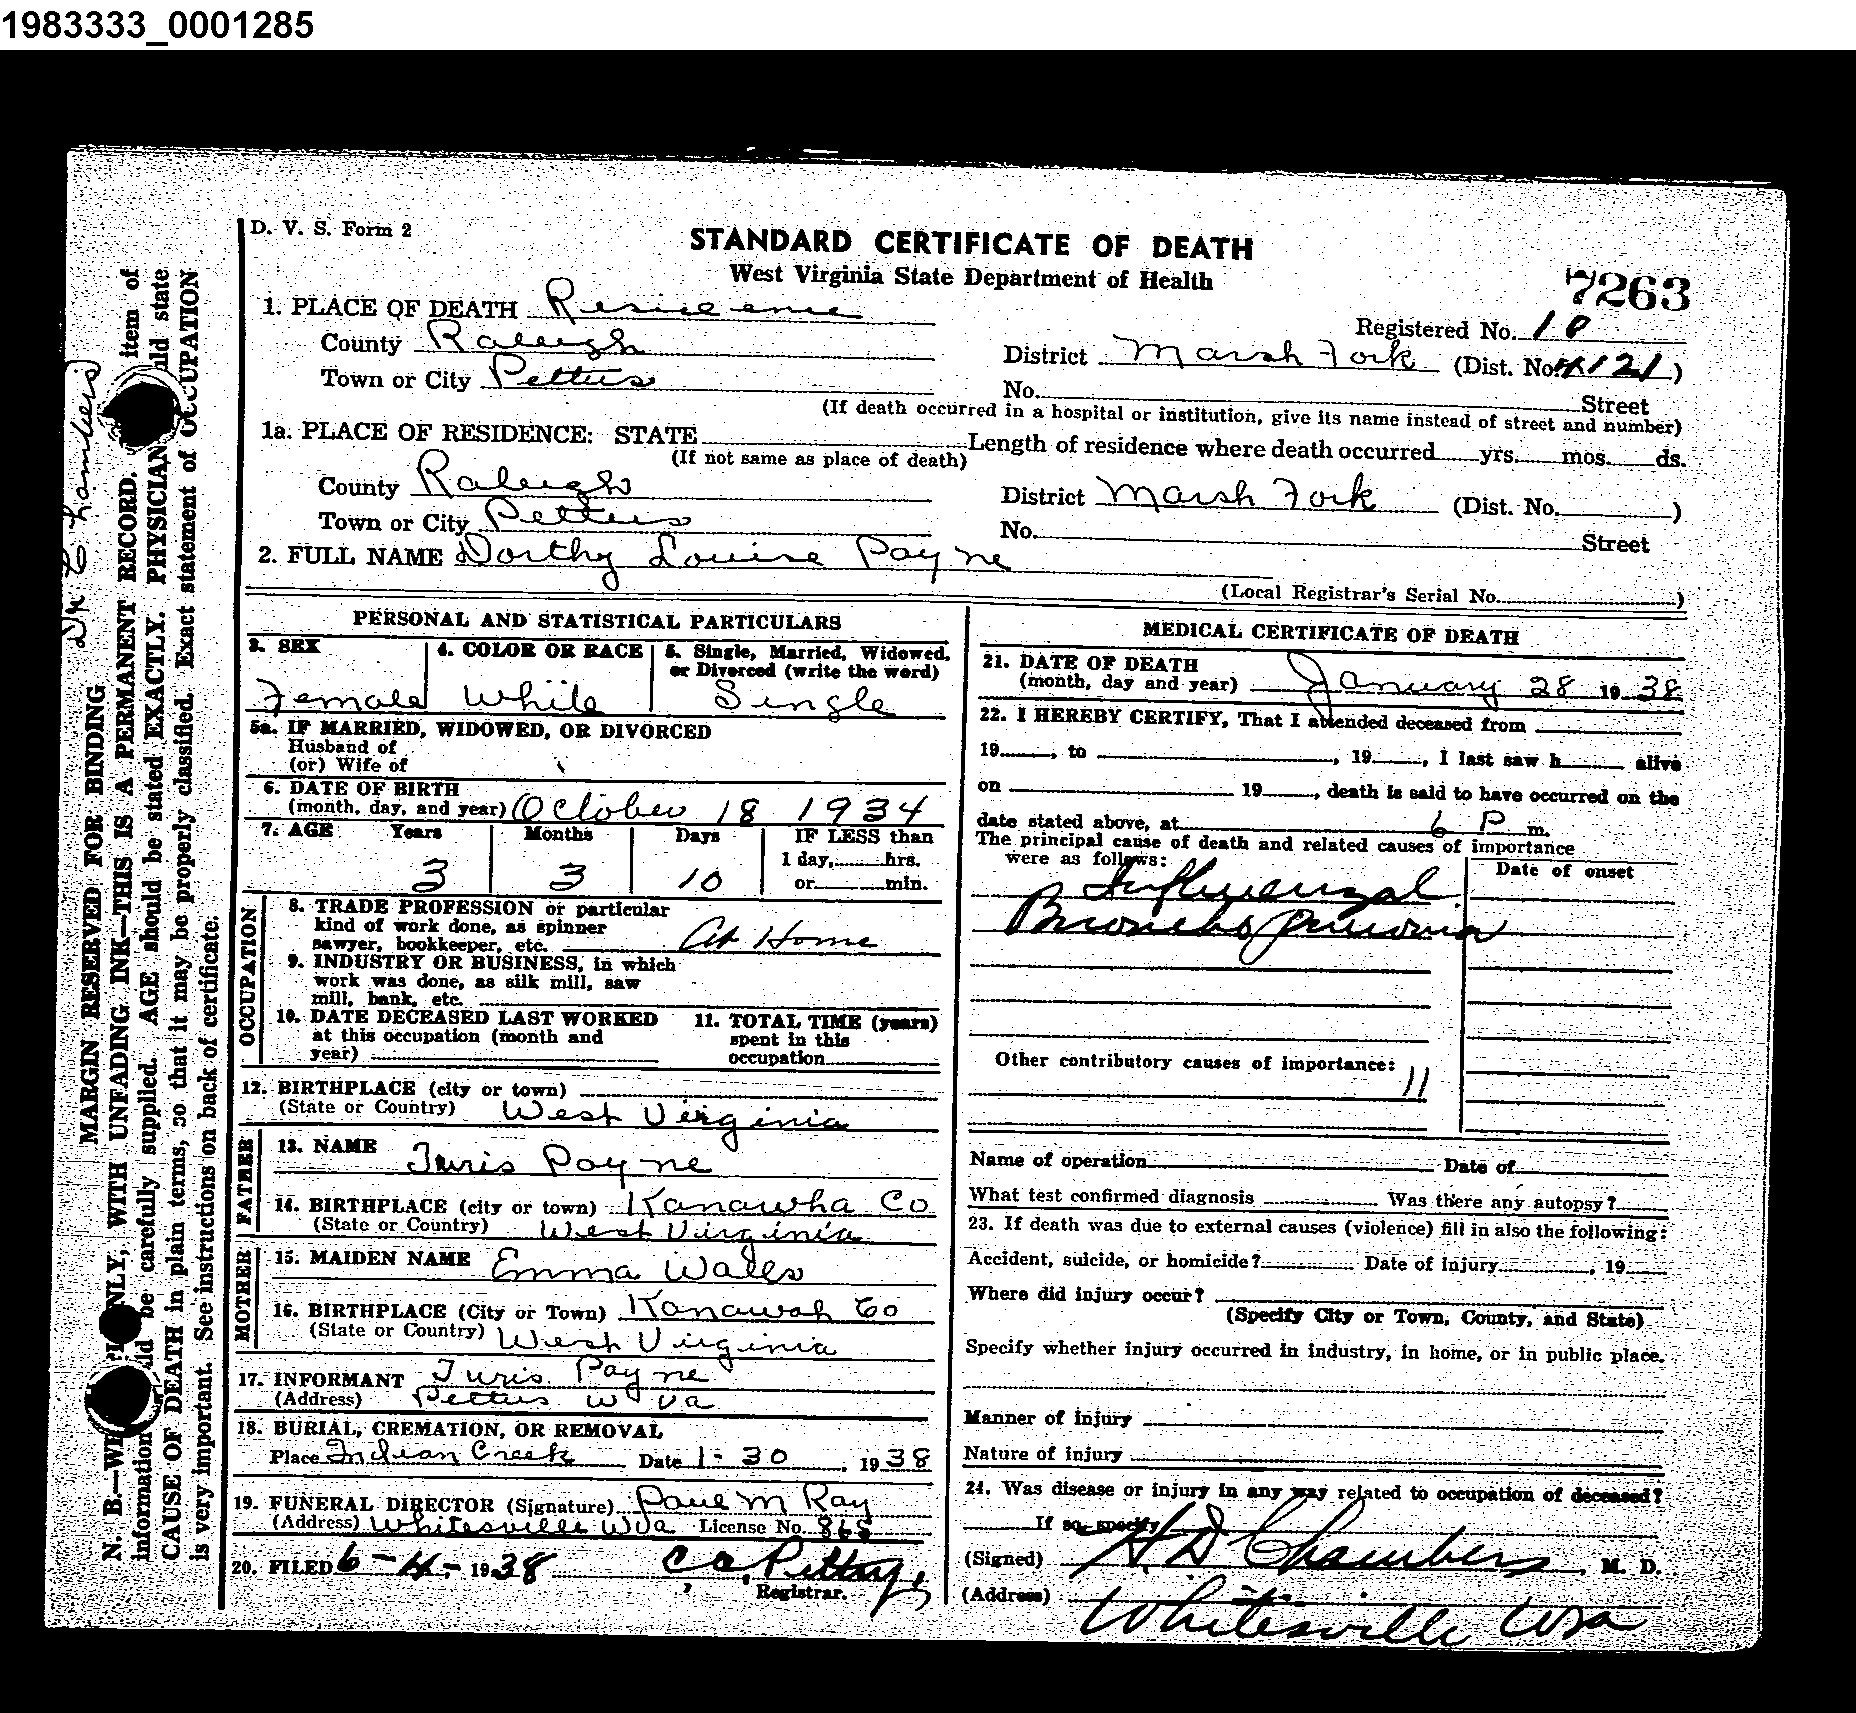 1983333_0001285
D. V. S. Form 2
STANDARD CERTIFICATE OF DEATH
West Virginia State Department of Health
7263
1. PLACE OF DEATH Residence
Registered No. 10
County Raleigh
District Marsh Fork (Dist. No. 4121)
Town or City Pettus
No. Street
(If death occurred in a hospital or institution, give its name instead of street and number)
1a. PLACE OF RESIDENCE: STATE Length of residence where death occurred yrs. mos. ds.
(If not same as place of death)
County Raleigh
District Marsh Fork (Dist. No. )
Town or City Pettus
No. Street
2. FULL NAME Dorthy Louise Payne
(Local Registrar's Serial No. )
PERSONAL AND STATISTICAL PARTICULARS
3. SEX
4. COLOR OR RACE
5. Single, Married, Widowed,
or Divorced (write the word)
Female White Single
5a. IF MARRIED, WIDOWED, OR DIVORCED
Husband of
(or) Wife of
6. DATE OF BIRTH
(month, day, and year) October 18 1934
7. AGE Years Months Days IF LESS than
1 day, hrs.
or min.
3 3 10
OCCUPATION
8. TRADE PROFESSION or particular
kind of work done, as spinner
sawyer, bookkeeper, etc. At Home
9. INDUSTRY OR BUSINESS, in which
work was done, as silk mill, saw
mill, bank, etc.
10. DATE DECEASED LAST WORKED
at this occupation (month and
year)
11. TOTAL TIME (years)
spent in this
occupation
12. BIRTHPLACE (city or town)
(State or Country) West Virginia
FATHER
13. NAME Turis Payne
14. BIRTHPLACE (city or town) Kanawha Co
(State or Country) West Virginia
MOTHER
15. MAIDEN NAME Emma Wales
16. BIRTHPLACE (City or Town) Kanawah Co
(State or Country) West Virginia
17. INFORMANT Turis Payne
(Address) Pettus W Va
18. BURIAL, CREMATION, OR REMOVAL
Place Indian Creek Date 1-30, 1938
19. FUNERAL DIRECTOR (Signature) Paul M Ray
(Address) Whitesville W Va License No. 865
20. FILED 6-4-1938
Registrar.
MEDICAL CERTIFICATE OF DEATH
21. DATE OF DEATH
(month, day and year) January 28 1938
22. I HEREBY CERTIFY, That I attended deceased from
19 , to , 19 , I last saw h alive
on 19 , death is said to have occurred on the
date stated above, at 6 P m.
The principal cause of death and related causes of importance
were as follows:
Date of onset
Influenzal
Broncho pneumonia
Other contributory causes of importance:
11
Name of operation Date of
What test confirmed diagnosis Was there any autopsy?
23. If death was due to external causes (violence) fill in also the following:
Accident, suicide, or homicide? Date of injury , 19
Where did injury occur?
(Specify City or Town, County, and State)
Specify whether injury occurred in industry, in home, or in public place.
Manner of injury
Nature of injury
24. Was disease or injury in any way related to occupation of deceased?
If so, specify
(Signed) H D Chambers, M. D.
(Address) Whitesville W Va
MARGIN RESERVED FOR BINDING
N. B.—WRITE PLAINLY, WITH UNFADING INK—THIS IS A PERMANENT RECORD. item of
information should be carefully supplied. AGE should be stated EXACTLY. PHYSICIAN should state
CAUSE OF DEATH in plain terms, so that it may be properly classified. Exact statement of OCCUPATION
is very important. See instructions on back of certificate.
Dr Chambers